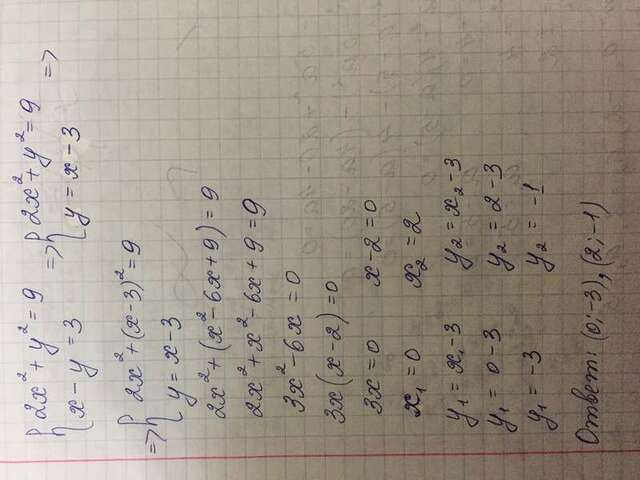 { 2x² + y² = 9 => { 2x² + y² = 9 =>
{ x - y = 3 { y = x - 3
=> { 2x² + (x-3)² = 9
{ y = x - 3
2x² + (x² - 6x + 9) = 9
2x² + x² - 6x + 9 = 9
3x² - 6x = 0
3x(x - 2) = 0
3x = 0 x - 2 = 0
x₁ = 0 x₂ = 2
y₁ = x₁ - 3 y₂ = x₂ - 3
y₁ = 0 - 3 y₂ = 2 - 3
y₁ = -3 y₂ = -1
Ответ: (0; -3), (2; -1)